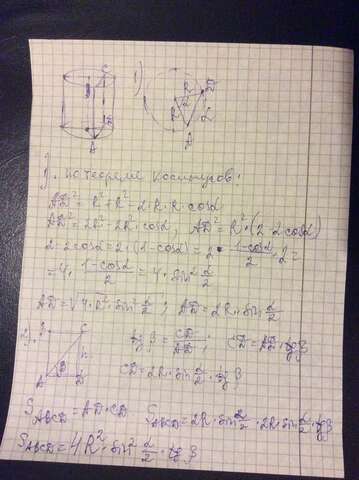 1). по теореме косинусов:
AD² = R² + R² - 2R·R·cosα
AD² = 2R² - 2R²·cosα; AD² = R²·(2-2cosα)
2-2cosα = 2·(1-cosα) = 2·(1-cosα)/2·2 =
= 4·(1-cosα)/2 = 4·sin² α/2
AD = √(4·R²·sin² α/2); AD = 2R·sin α/2
2).
tg β = CD/AD; CD = AD·tg β
CD = 2R·sin α/2·tg β
S_ABCD = AD·CD S_ABCD = 2R·sin α/2·2R·sin α/2·tg β
S_ABCD = 4R²·sin² α/2·tg β